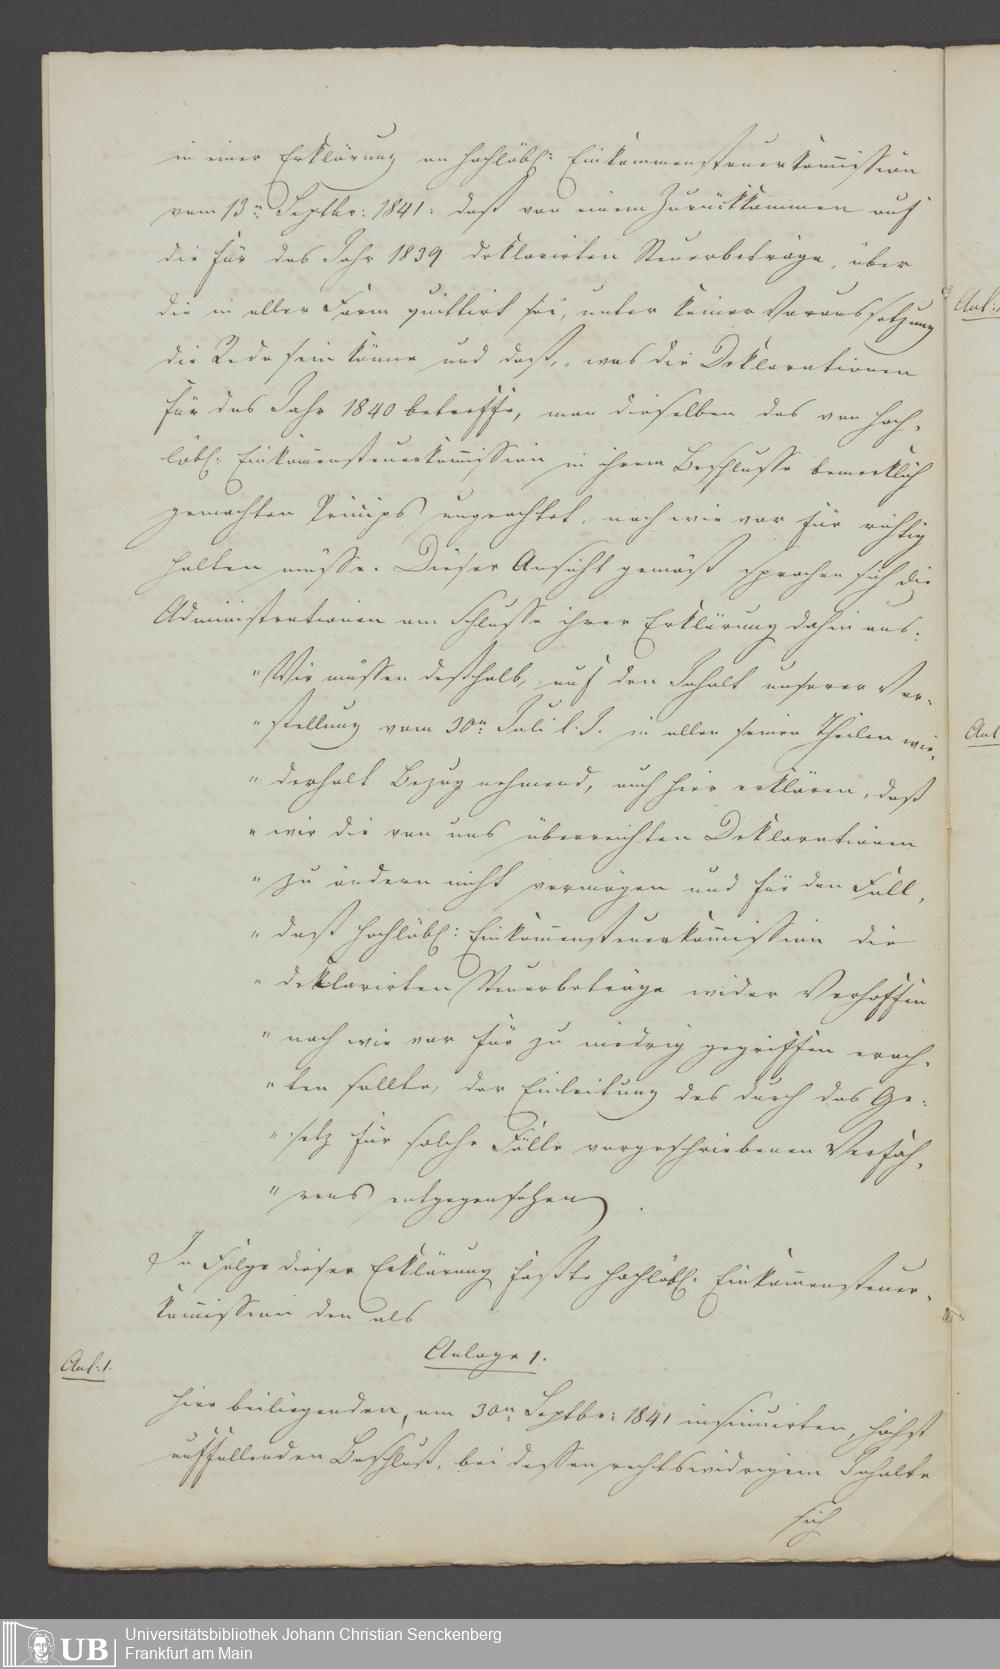 in einer Erklärung an hochlöbl: Einkommensteuerkom̅ission
vom 13n Septbr: 1841: daß von einem Zurückkommen auf
die für das Jahr 1839 deklarirten Steuerbeträge, über
die in aller Form quittirt sei, unter keiner Voraussetzung
die Rede sein könne und daß, was die Deklarationen
für das Jahr 1840 betreffe, man dieselben des von hoch-
löbl: Einkom̅ensteuerkom̅ission in ihrem Beschlusse bemerklich
gemachten Prinzips ungeachtet, nach wie vor für richtig
halten müsse. Dieser Ansicht gemäß sprachen sich die
Administrationen am Schlusse ihrer Erklärung dahin aus:
"Wir müssen deßhalb, auf den Inhalt unserer Vor-
"stellung vom 30n Juli l. J. in allen seinen Theilen wie-
"derholt Bezug nehmend, auch hier erklären, daß
"wir die von uns überreichten Deklarationen
"zu ändern nicht vermögen und für den Fall,
"daß hochlöbl: Einkom̅ensteuerkom̅ission die
"deklarirten Steuerbeträge wider Verhoffen
"nach wie vor für zu niedrig gegriffen erach-
"ten sollte, der Einleitung des durch das Ge-
"setz für solche Fälle vorgeschriebenen Verfah-
"rens entgegensehen.
In Folge dieser Erklärung faßte hochlöbl: Einkom̅ensteuer-
kom̅ission den als
Anlage 1.
Anl: 1.
hier beiliegenden, am 30n Septbr: 1841 insinuirten, höchst
auffallenden Beschluß, bei dessen rechtswidrigem Inhalte
sich
Anl:
Anl
UB
Universitätsbibliothek Johann Christian Senckenberg
Frankfurt am Main